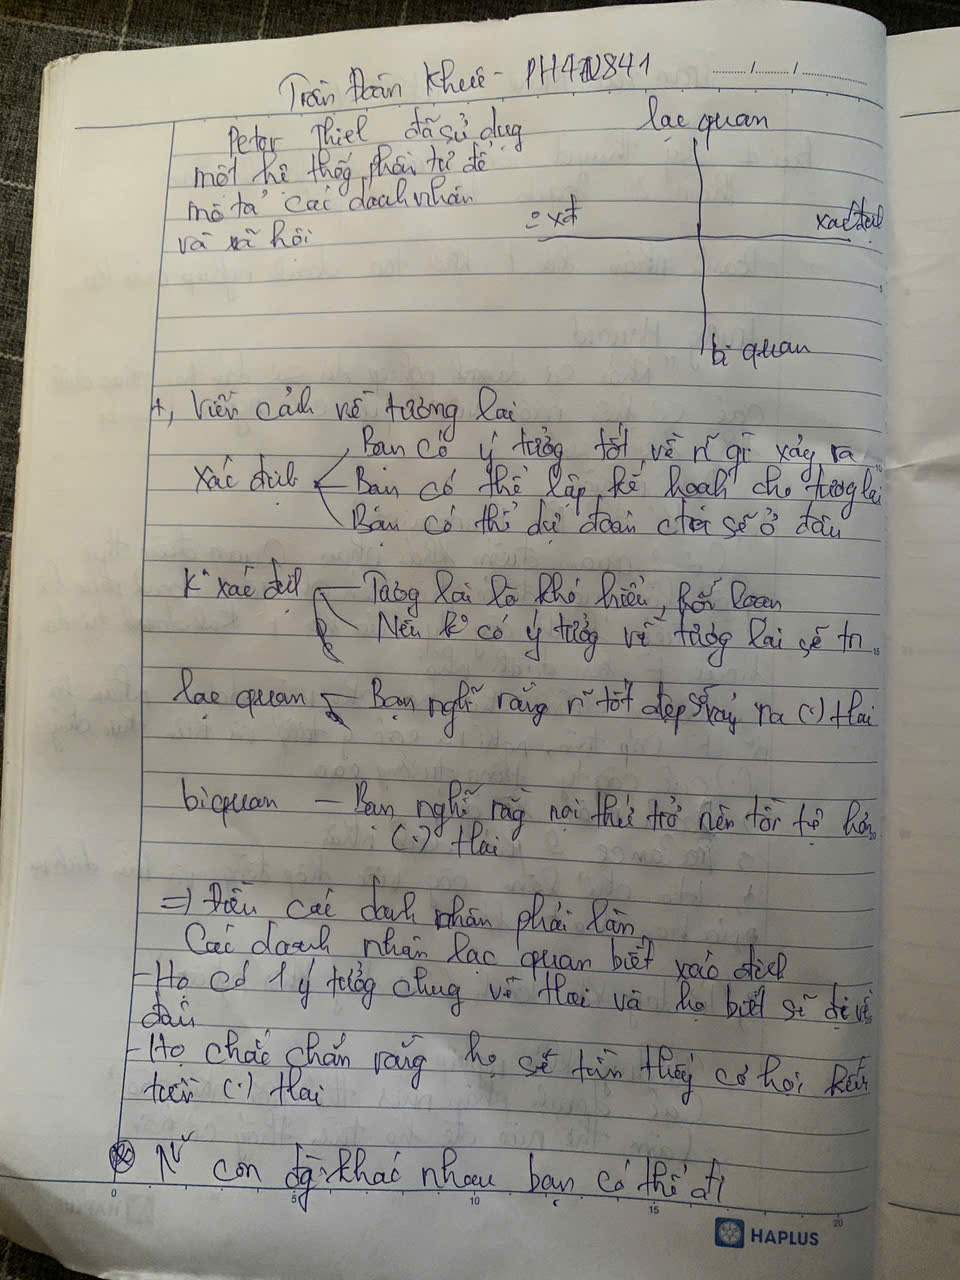 Trần Đoàn Khuê - PH41N841
...../...../.....
Peter Thiel đã sử dụg
một hệ thốg phần tư để
mô tả các doah nhân
và xã hội
lạc quan
xđ
xác địh
bi quan
+, Viễn cảh về tương lai
Bạn có ý tưởng tốt về n~ gì xảy ra
xác địh
Bạn có thể lập kế hoạh cho tươg lai
Bạn có thể dự đoán cta sẽ ở đâu
k° xác địh
Tươg lai là khó hiểu, hỗn loạn
Nếu k° có ý tưởng về tương lai sẽ tn
lạc quan
Bạn nghĩ rằng n~ tốt đẹp sẽ xảy ra (.) tlai
bi quan — Bạn nghĩ rằg mọi thứ trở nên tồi tệ hơn
(.) tlai
=) Điều các doah nhân phải làm
Các doanh nhân lạc quan biết xác địh
- Họ có 1 ý tưởng chug về tlai và họ biết sẽ đi về
đâu
- Họ chắc chắn rằng họ sẽ tìm thấy cơ hội kiếm
tiền (.) tlai
N~ con đg khác nhau bạn có thể đi
0 5 10 15 20
HAPLUS